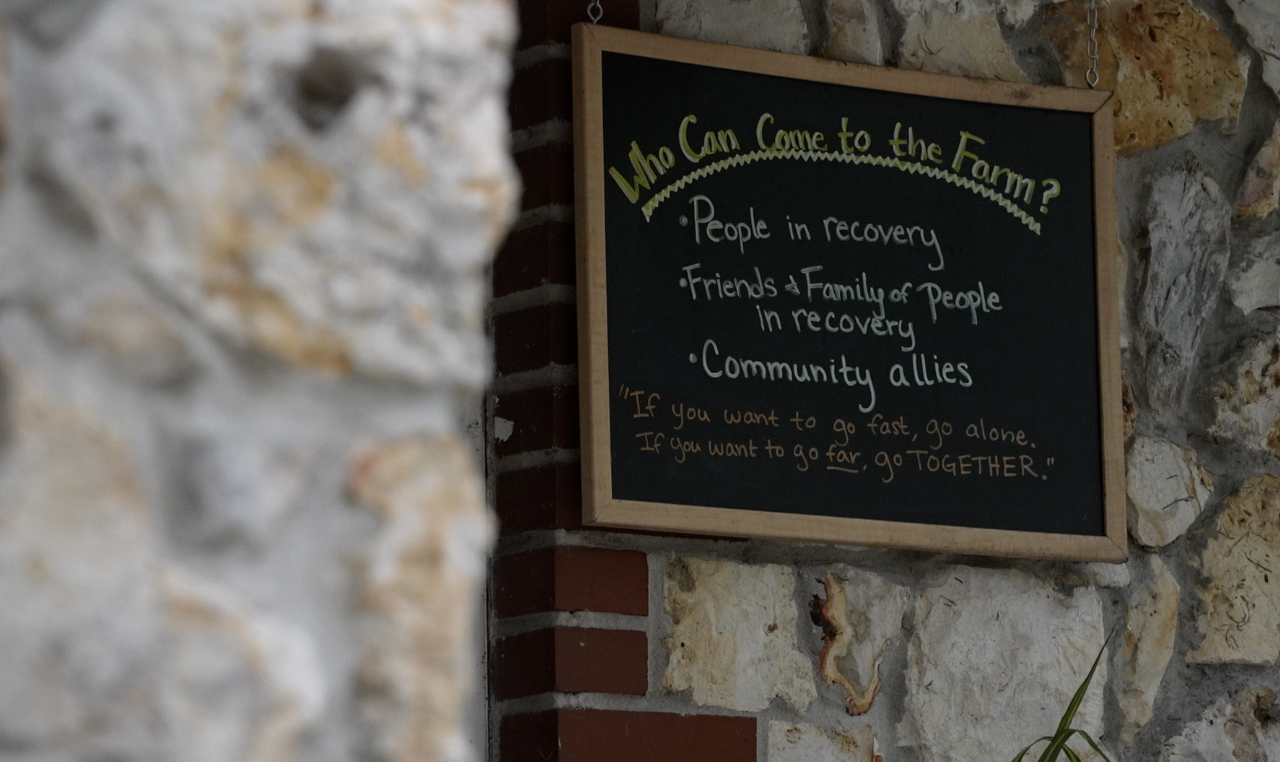 Who Can Come to the Farm?
•People in recovery
•Friends & Family of People
in recovery
•Community allies
"If you want to go fast, go alone.
If you want to go far, go TOGETHER."